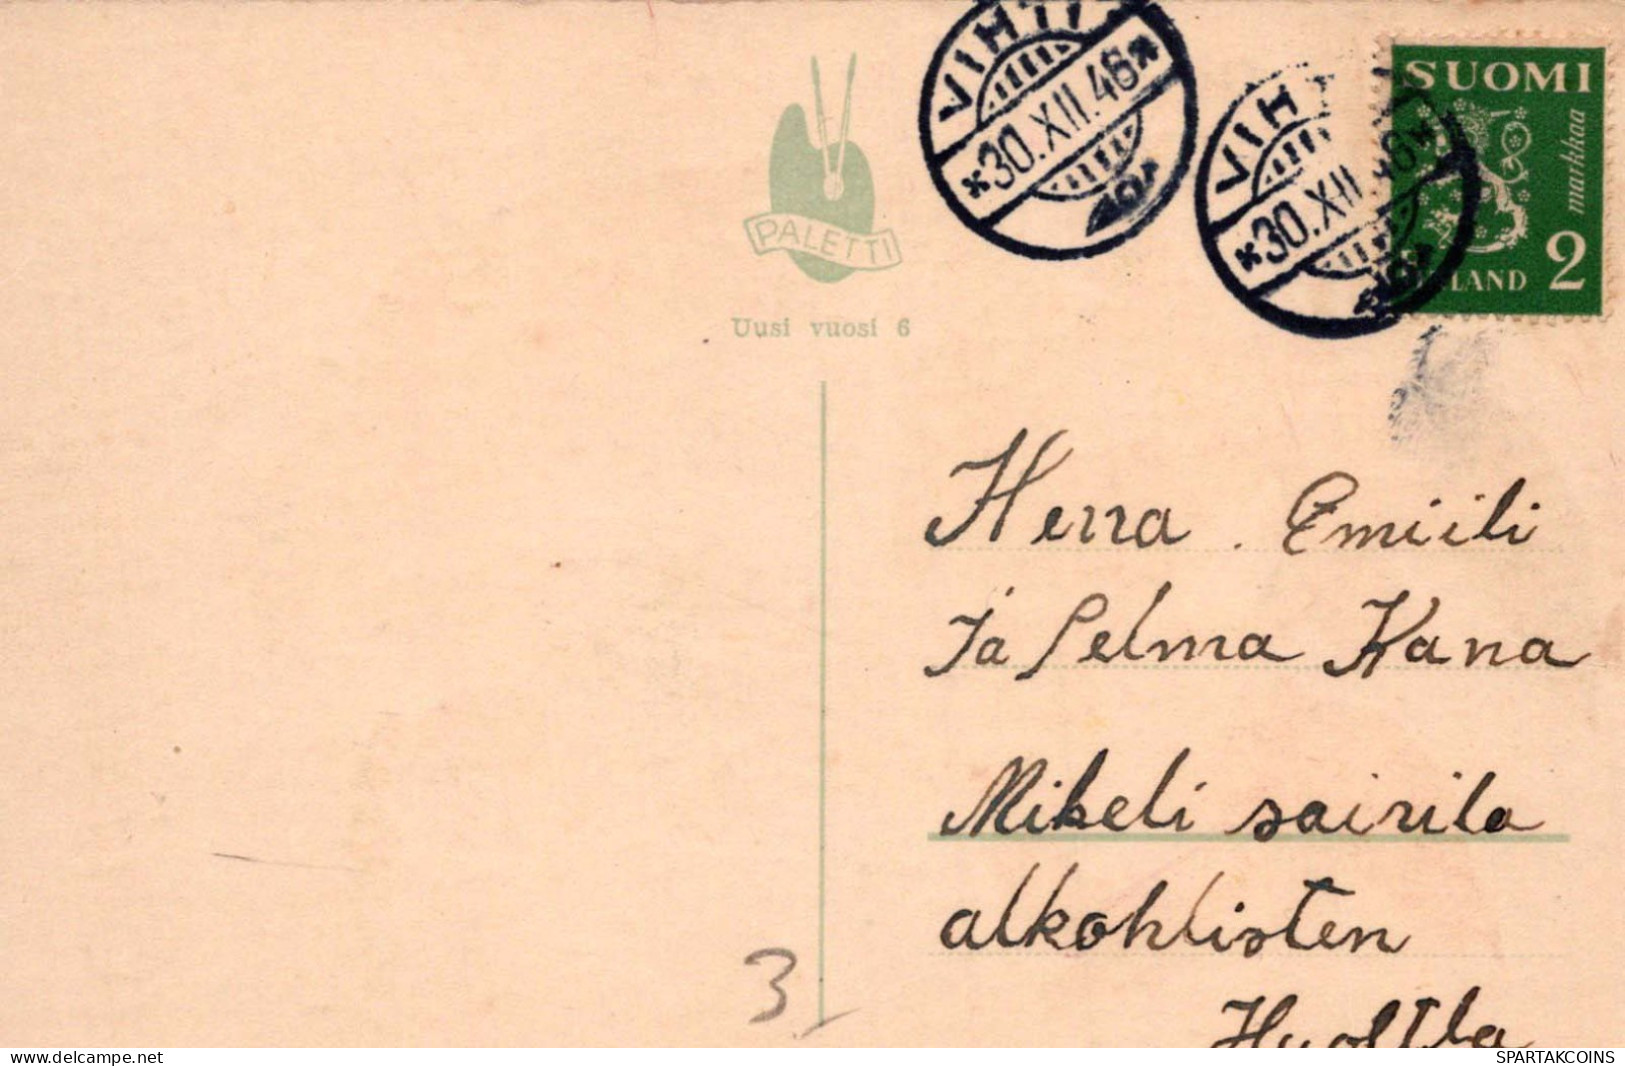 VIHTI
*30.XII.46*
VIHTI
*30.XII.46*
SUOMI
markkaa
2
LAND
PALETTI
Uusi vuosi 6
Herra. Emiili
Ja Selma Kana
Mikeli sairila
alkohlisten
Huoltla
3
www.delcampe.net
SPARTAKCOINS